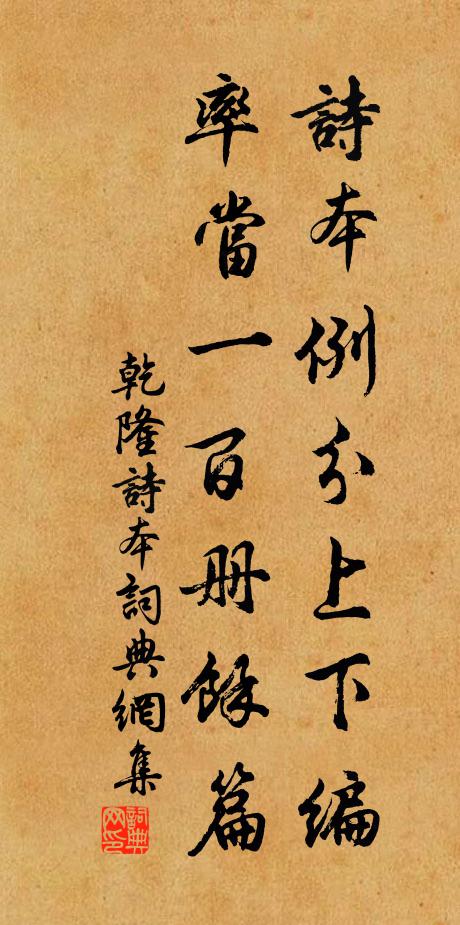 詩本例分上下編
率當一百册餘篇
乾隆詩本詞典網集
詞典
网印